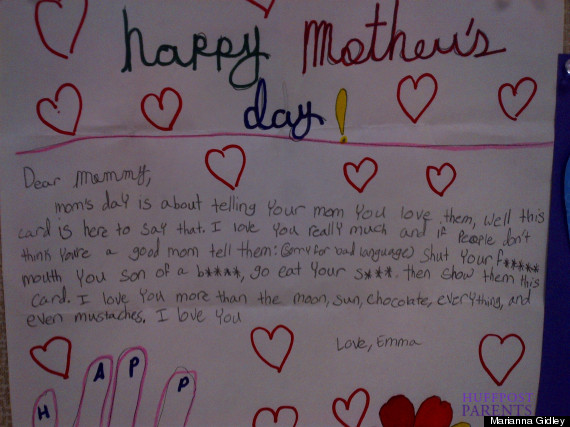 happy Mother's
day!
Dear Mommy,
mom's day is about telling your mom you love them, well this
card is here to say that. I love you really much and if people don't
think you're a good mom tell them: (sorry for bad language) shut your f*****
mouth you son of a b****, go eat your s***. then show them this
card. I love you more than the moon, sun, chocolate, everything, and
even mustaches. I love you
Love, Emma
H A P P
HUFFPOST
PARENTS
Marianna Gidley